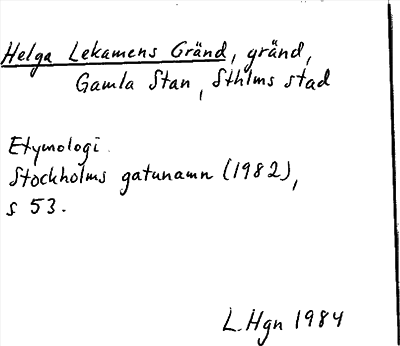 Helga Lekamens Gränd, gränd,
Gamla Stan, Sthlms stad
Etymologi.
Stockholms gatunamn (1982),
s 53.
L. Hgn 1984